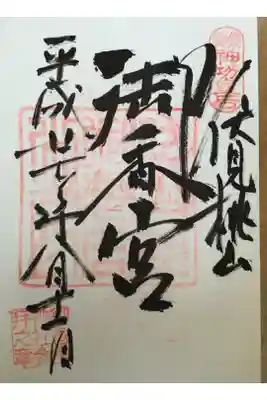 伏見桃山
御香宮
平成廿七年八月十二日